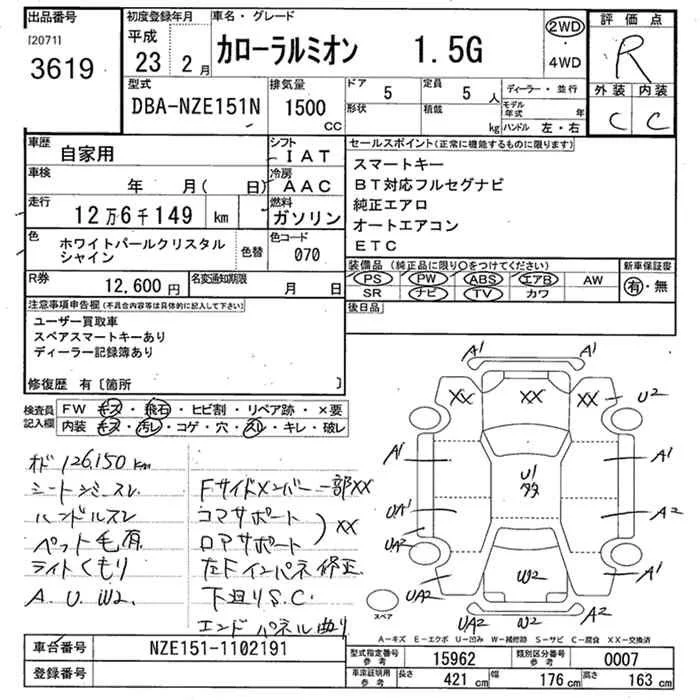 出品番号 初度登録年月 車名・グレード 評価点
[2071] 平成 カローラルミオン 1.5G 2WD R
3619 23 2月 ・4WD
型式 排気量 ドア 定員 ディーラー・並行 外装 内装
DBA-NZE151N 1500 CC 5 5人 C C
形状 積載 kg モデル年式 年
ハンドル 左・右
車歴 自家用 シフト IAT セールスポイント(正常に機能するものに限ります)
車検 年 月( 日) 冷房 AAC スマートキー
走行 12万6千149 km 燃料 ガソリン BT対応フルセグナビ
純正エアロ
色 ホワイトパールクリスタルシャイン 色替 色コード 070 オートエアコン
ETC
R券 12,600円 名変通知期限 月 日 装備品(純正品に限り○をつけてください) 新車保証書
PS PW ABS エアB AW 有・無
SR ナビ TV カワ
注意事項申告欄(不具合内容等は具体的に記入して下さい) 後日品
ユーザー買取車
スペアスマートキーあり
ディーラー記録簿あり
修復歴 有〔箇所 〕
検査員記入欄 FW キズ・飛石・ヒビ割・リペア跡・×要
内装 キズ・汚レ・コゲ・穴・スレ・キレ・破レ
オド 126,150 km
シートシミ・スレ Fサイドメンバー一部XX
ハンドルスレ コアサポート
ペット毛有 ロアサポート ) XX
ライトくもり 左Fインパネ修正
A.U.W2. 下廻りS.C.
エンドパネル曲り
A1 A1
XX XX XX U2
A1 U1 A1
UA1 A2
UA2 A1
UA2 W2
UA2 W2 A2
スペア
A-キズ E-エクボ U-凹み W-補修跡 S-サビ C-腐食 XX-交換済
車台番号 NZE151-1102191 型式指定番号 参考 15962 類別区分番号 参考 0007
登録番号 車庫証明用 参考 長さ 421 cm 幅 176 cm 高さ 163 cm